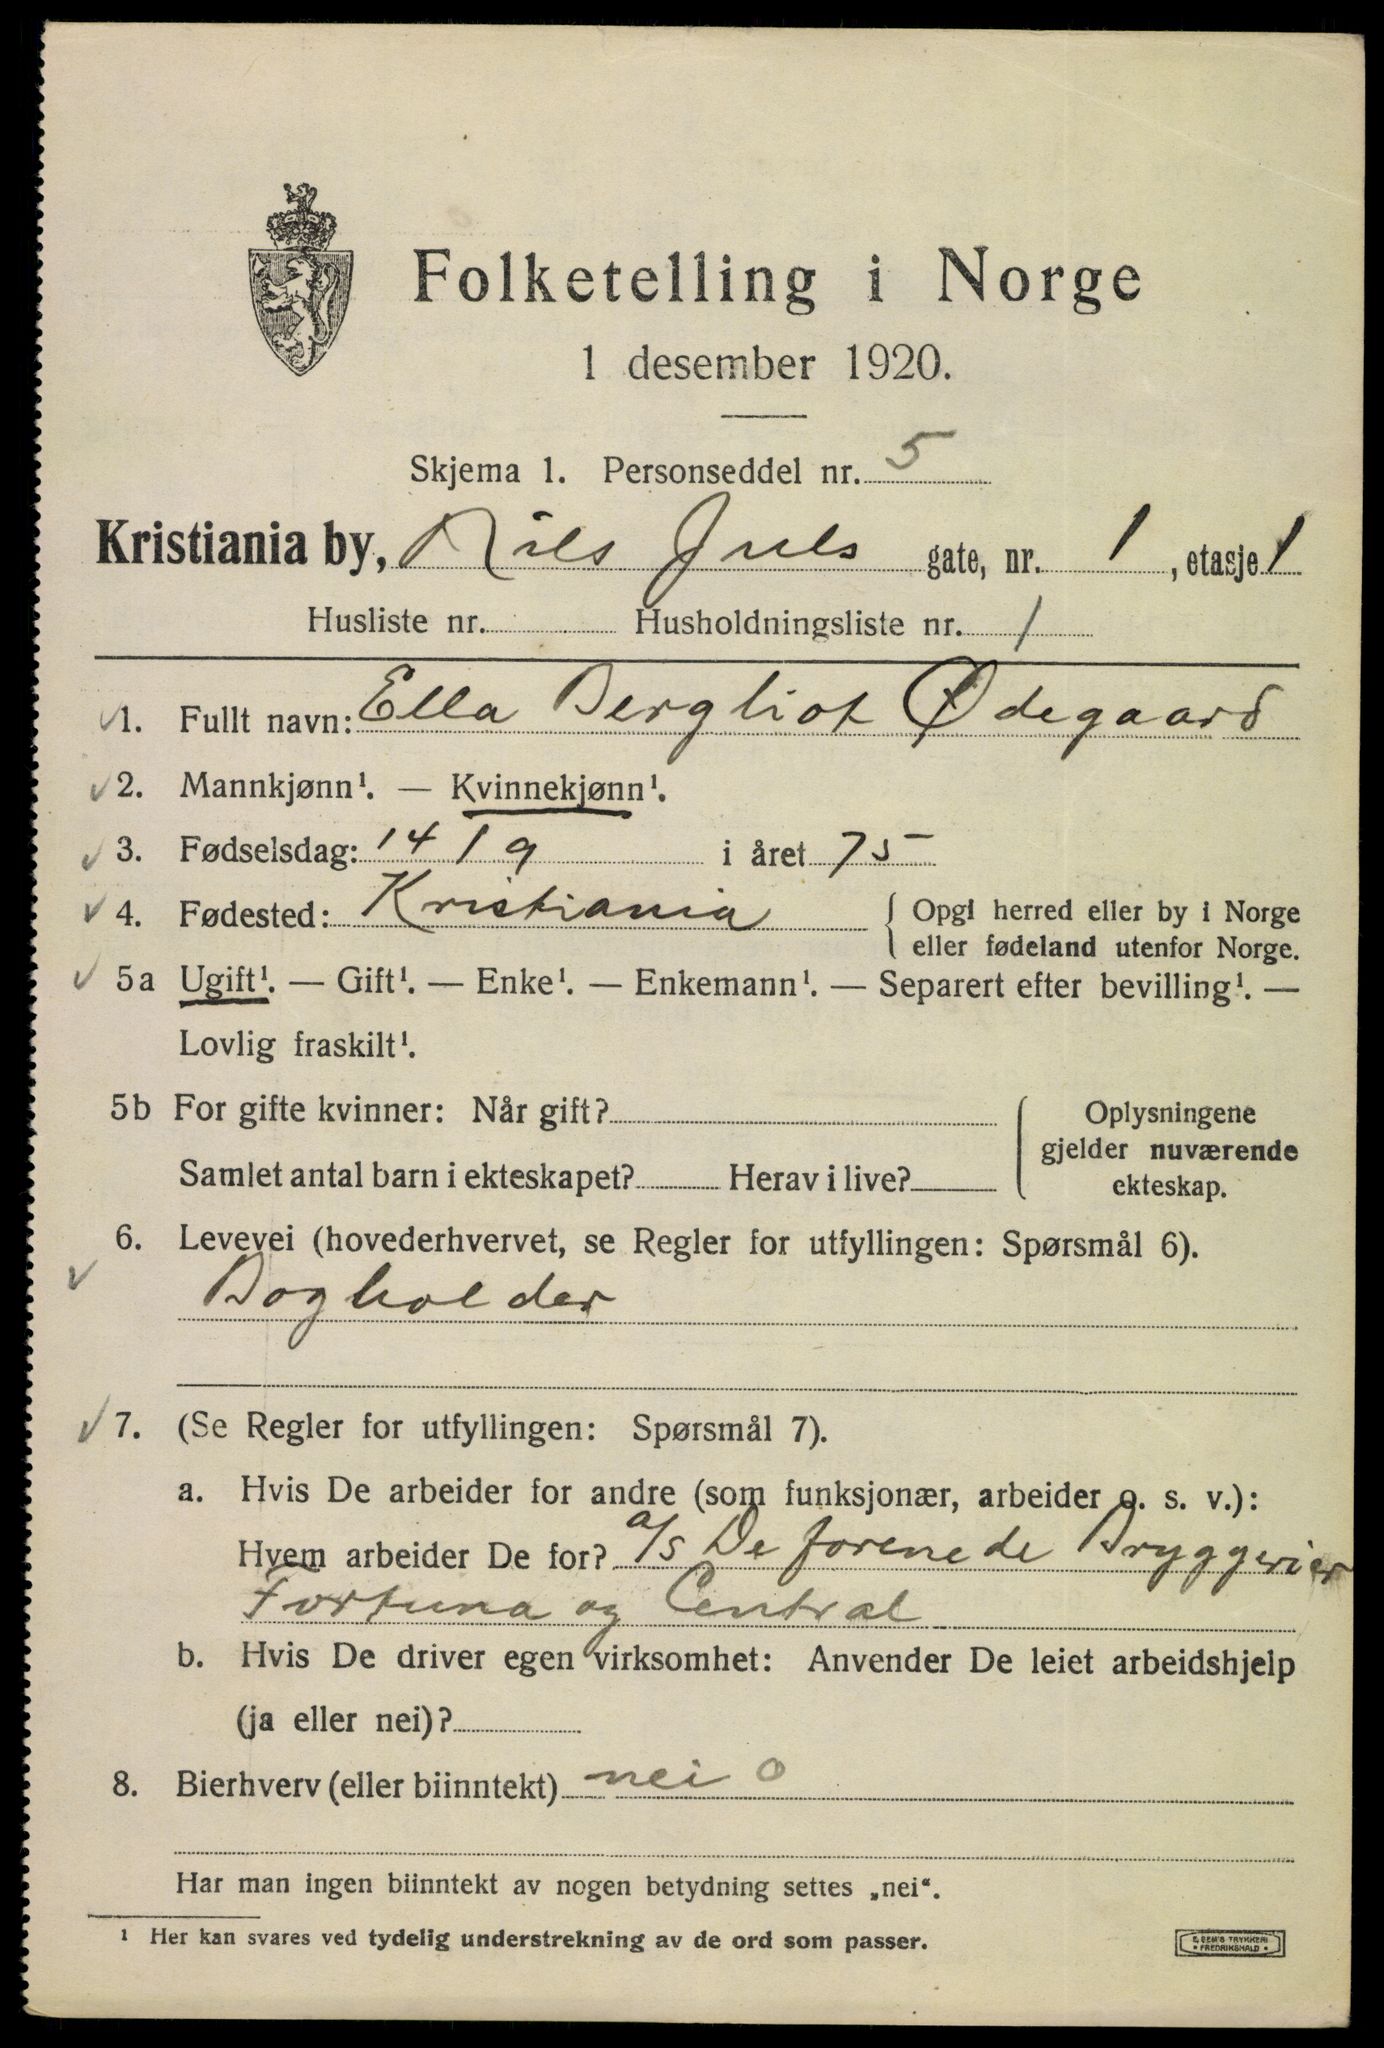 Folketelling i Norge
1 desember 1920.
Skjema 1. Personseddel nr. 5
Kristiania by, Nils Juls gate, nr. 1, etasje 1
Husliste nr. Husholdningsliste nr. 1
1. Fullt navn: Ella Bergliot Ødegaard
2. Mannkjønn¹. — Kvinnekjønn¹.
3. Fødselsdag: 14 / 9 i året 75
4. Fødested: Kristiania { Opgi herred eller by i Norge
eller fødeland utenfor Norge.
5a Ugift¹. — Gift¹. — Enke¹. — Enkemann¹. — Separert efter bevilling¹. —
Lovlig fraskilt¹.
5b For gifte kvinner: Når gift? Oplysningene
gjelder nuværende
Samlet antal barn i ekteskapet? Herav i live? ekteskap.
6. Levevei (hovederhvervet, se Regler for utfyllingen: Spørsmål 6).
Bogholder
7. (Se Regler for utfyllingen: Spørsmål 7).
a. Hvis De arbeider for andre (som funksjonær, arbeider o. s. v.):
Hvem arbeider De for? a/s De forenede Bryggerier
Fortuna og Central
b. Hvis De driver egen virksomhet: Anvender De leiet arbeidshjelp
(ja eller nei)?
8. Bierhverv (eller biinntekt) nei 0
Har man ingen biinntekt av nogen betydning settes „nei“.
¹ Her kan svares ved tydelig understrekning av de ord som passer.
E. SEM'S TRYKKERI
FREDRIKSHALD